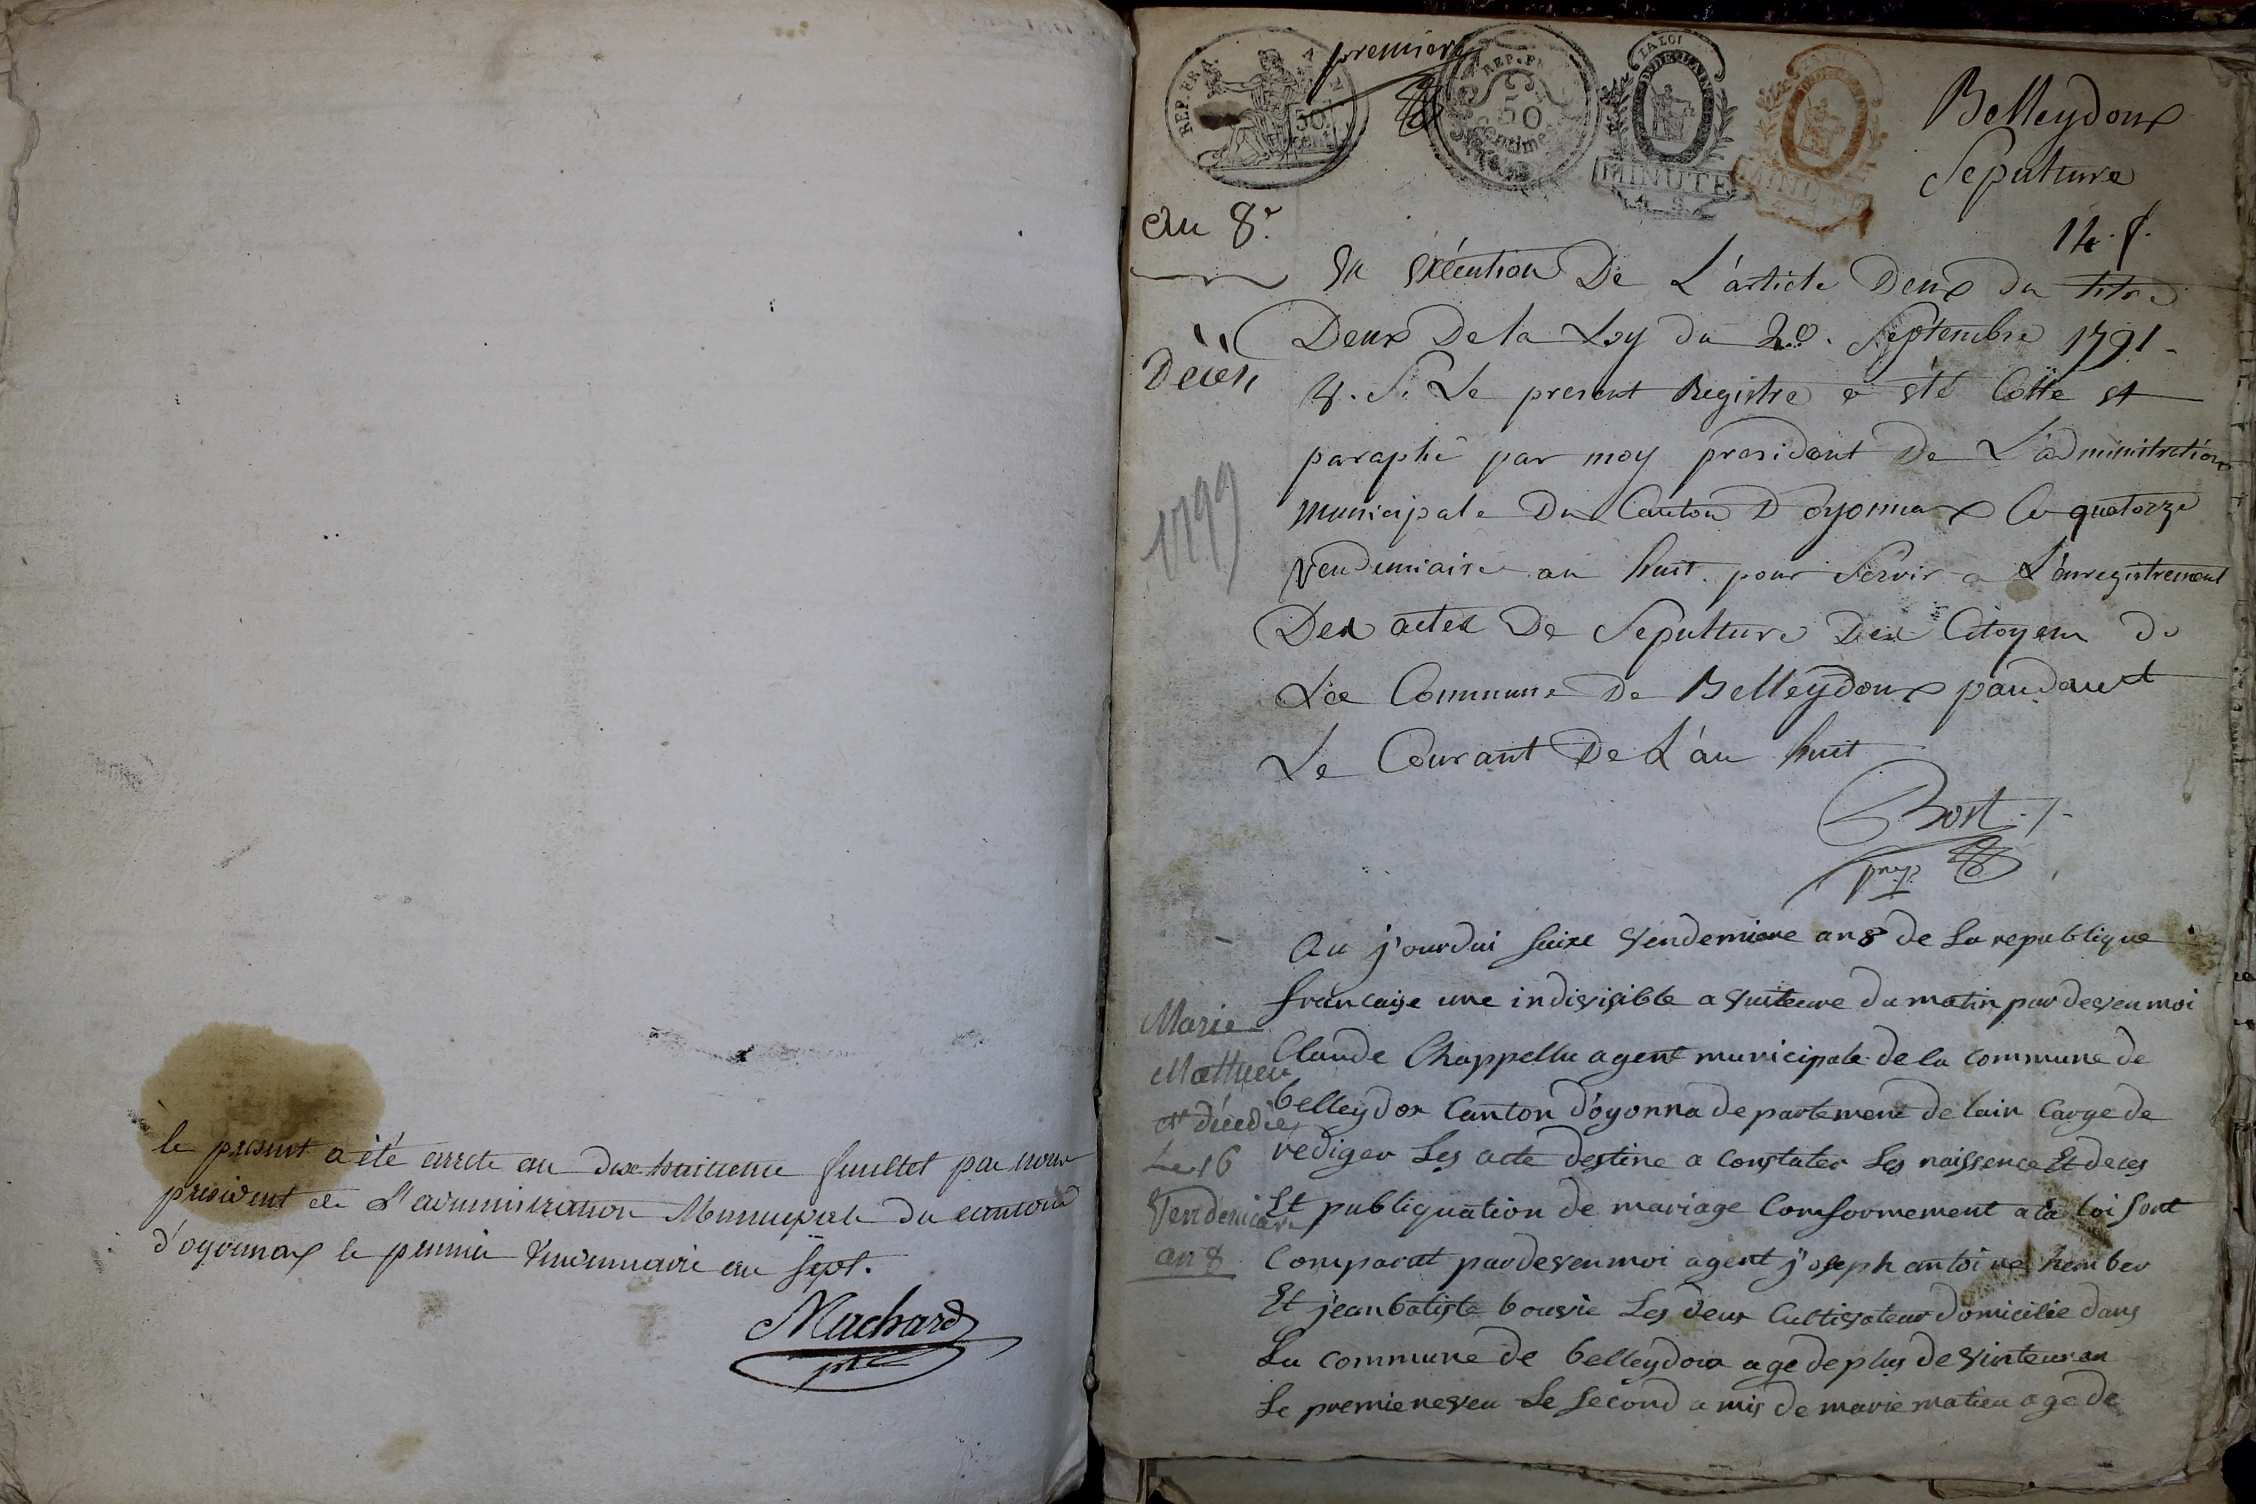 le present a été arrete au dix huitieme feuillet par nous
president de l'administration Municipale du canton
d'oyonnax le premier Vendemiaire an sept.
Machard
pte
premiere
REP. FRA.
50
cent.
REP. FR
50
Centimes
LA LOI
DD. DE L'AIN
MINUTE
MINUTE
Belleydoux
Sepulture
14. f.
An 8e
En Exécution De L'article Deux du titre
Deux De la Loy du 20. Septembre 1791
V. S. Le present Registre a été Cotté et
Décès
paraphé par moy president De L'administration
1799
Municipale Du Canton D'oyonnax Ce quatorze
Vendemiaire an huit. pour Servir a L'enregistrement
Des actes De Sepulture Des Citoyens de
La Commune De Belleydoux pandant
Le Courant De L'an huit
Bort
Au j'ourdui Seize Vendemiere an 8 de La republique
francaise une indivisible a vuiteure du matin par deven moi
Marie
Mathieu
est décédée
Le 16
Vendemiaire
an 8
Claude Chappellu agent municipale de la commune de
belleydox Canton d'oyonna departement de lain Carge de
rediger Les acte destine a Constater Les naissence Et deces
Et publiquation de mariage Conformement a la loi Sont
Comparat pardeven moi agent j'oseph antoine humber
Et jean batiste bouvie Les deux Cultivateur domicilie dans
La commune de belleydoux age de plus de vinteun an
Le premie neveu Le Second amis de marie matieu age de